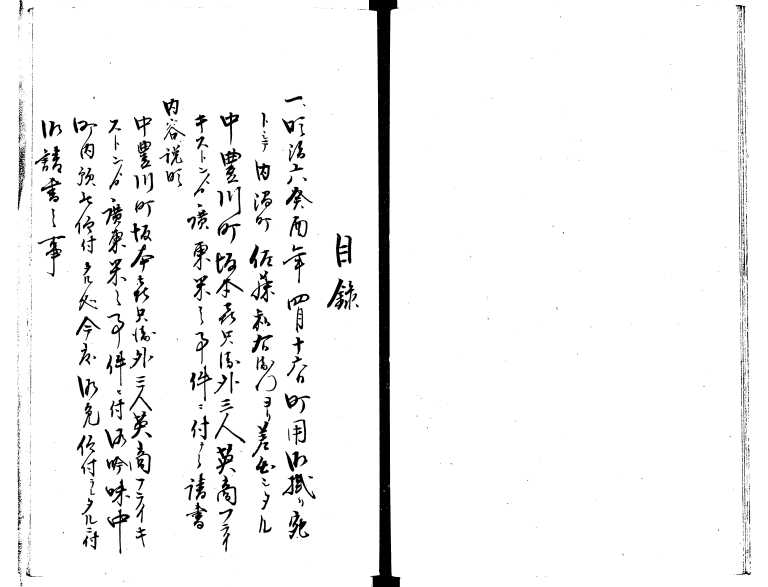 目録
一、明治六癸酉年四月十六日町用御掛リ宛
トシテ内沼町佐藤和右衛門ヨリ差出シタル
中豊川町坂本喜兵衛外三人英商フライ
キストンゟ廣東米之事件ニ付テノ請書
内容説明
中豊川町坂本喜兵衛外三人英商フライキ
ストンゟ廣東米之事件ニ付御吟味中
町内預ケ仰付置候処今度御免仰付ラレタルニ付
御請書之事